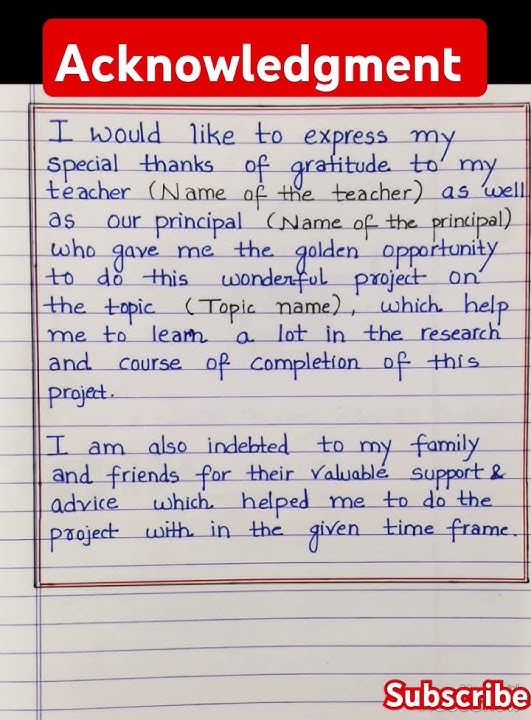 Acknowledgment
I would like to express my
special thanks of gratitude to my
teacher (Name of the teacher) as well
as our principal (Name of the principal)
who gave me the golden opportunity
to do this wonderful project on
the topic (Topic name), which help
me to learn a lot in the research
and course of completion of this
project.
I am also indebted to my family
and friends for their valuable support &
advice which helped me to do the
project with in the given time frame.
Subscribe